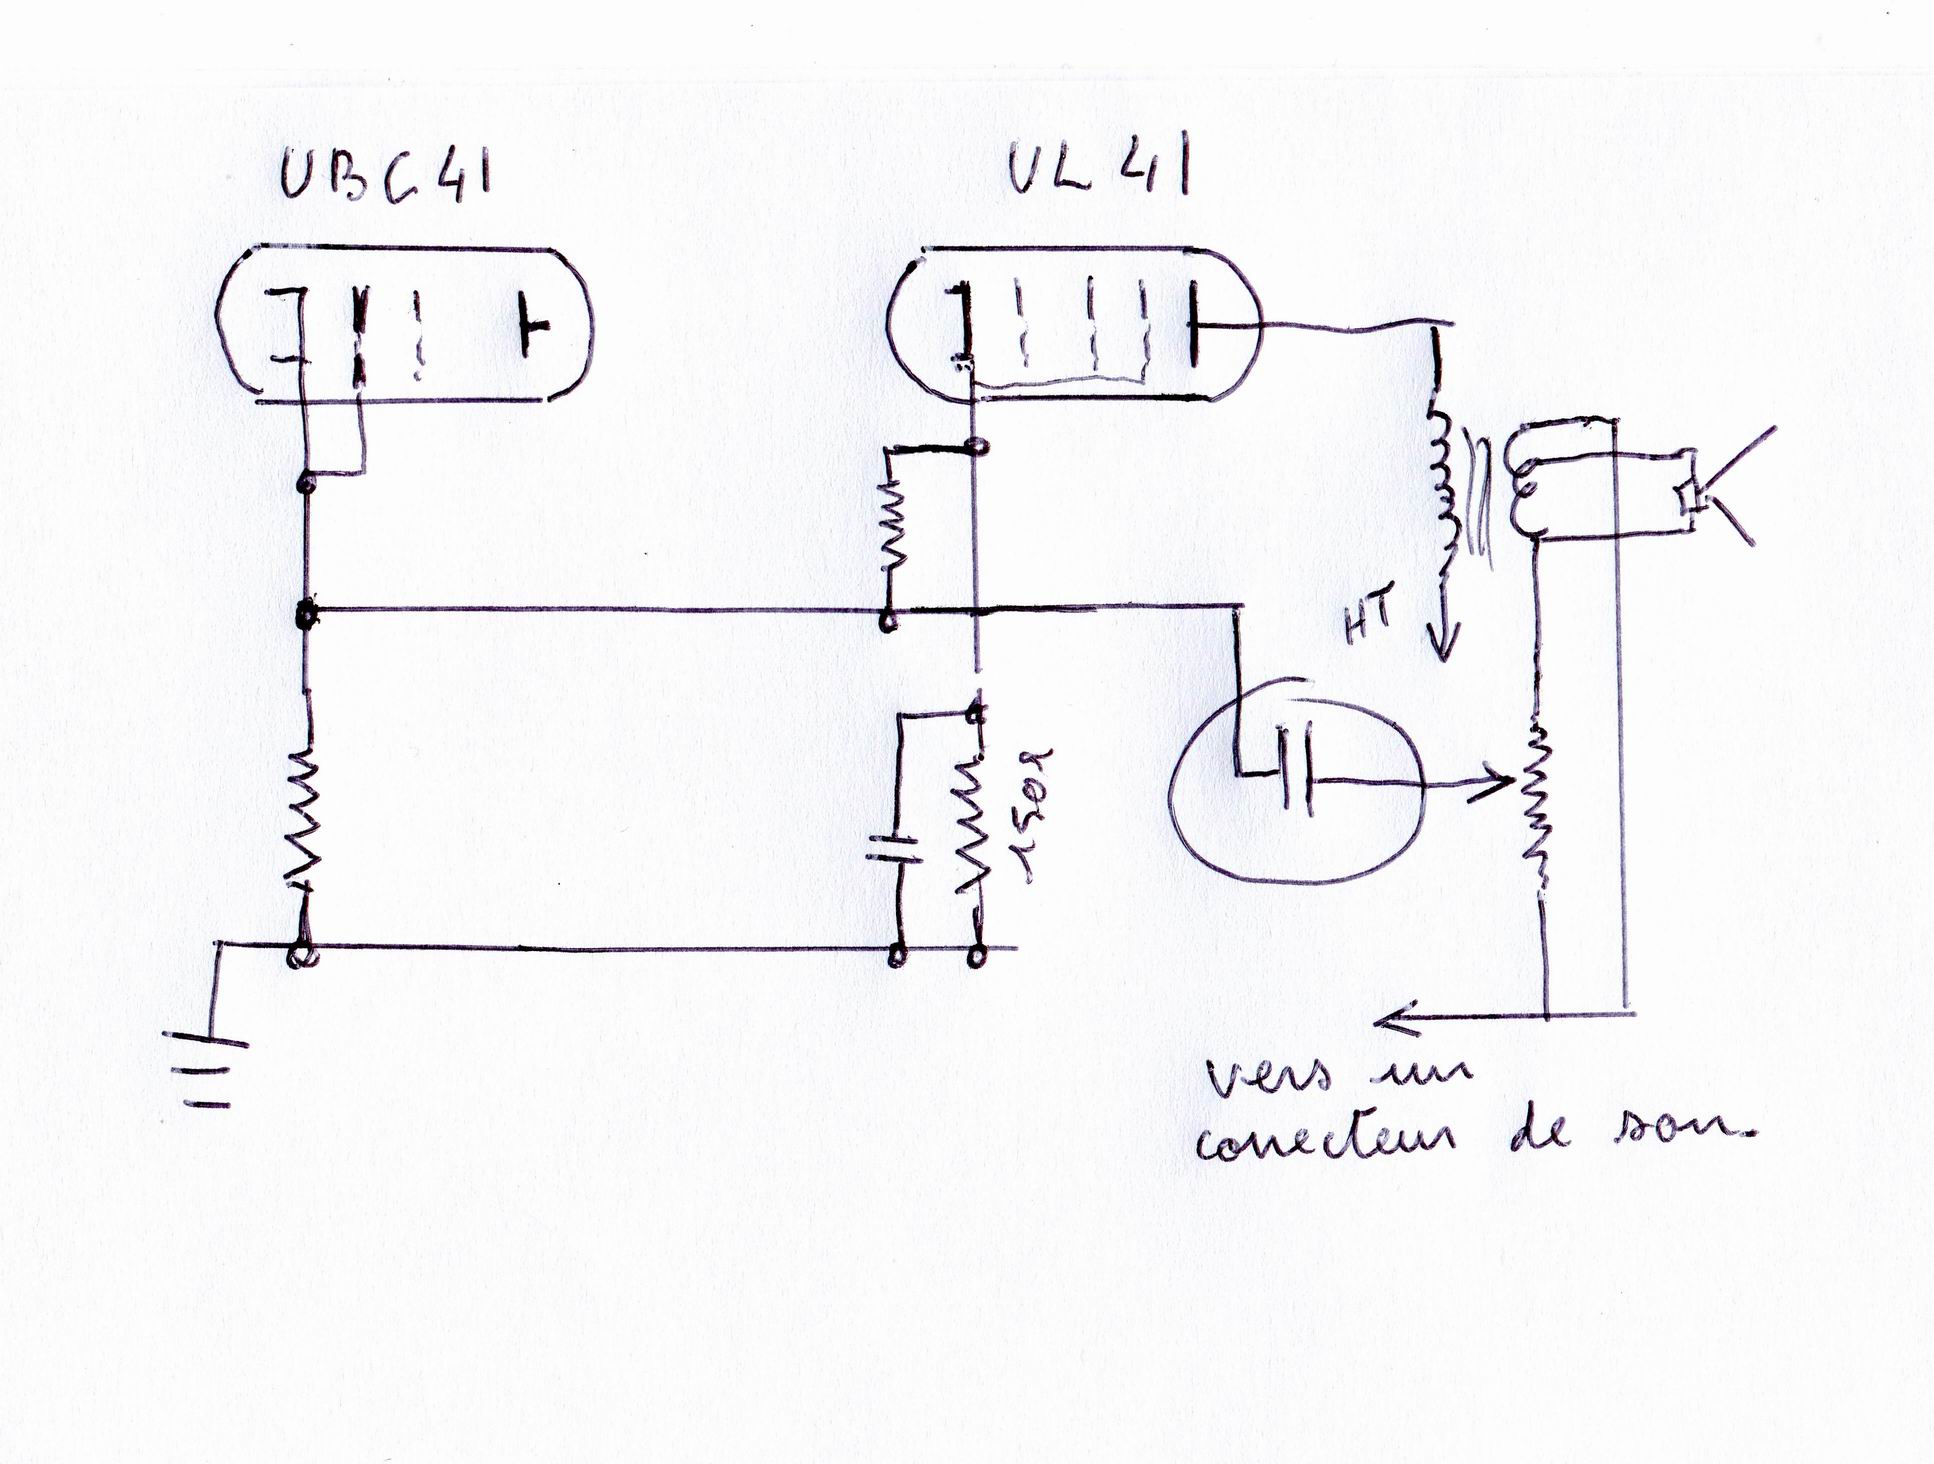 UBC41
UL41
HT
150Ω
vers un
correcteur de son.